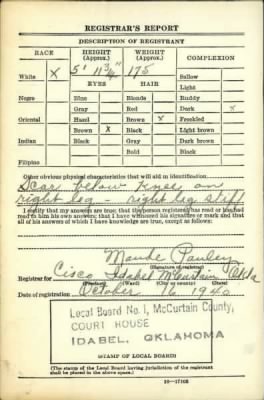 REGISTRAR'S REPORT
DESCRIPTION OF REGISTRANT
RACE HEIGHT (Approx.) WEIGHT (Approx.) COMPLEXION
White X 5' 11 3/4" 175 Sallow
EYES HAIR Light
Negro Blue Blonde Ruddy
Gray Red Dark X
Oriental Hazel Brown X Freckled
Brown X Black Light brown
Indian Black Gray Dark brown
Bald Black
Filipino
Other obvious physical characteristics that will aid in identification
Scar below knee on
right leg - right leg stiff
I certify that my answers are true; that the person registered has read or has had
read to him his own answers; that I have witnessed his signature or mark and that
all of his answers of which I have knowledge are true, except as follows:
Maude Pauley
(Signature of registrar)
Registrar for Cisco Idabel McCurtain Okla
(Precinct) (Ward) (City or county) (State)
Date of registration October 16 1940
Local Board No. 1, McCurtain County,
COURT HOUSE
IDABEL, OKLAHOMA
(STAMP OF LOCAL BOARD)
(The stamp of the Local Board having jurisdiction of the registrant
shall be placed in the above space.)
16-17105